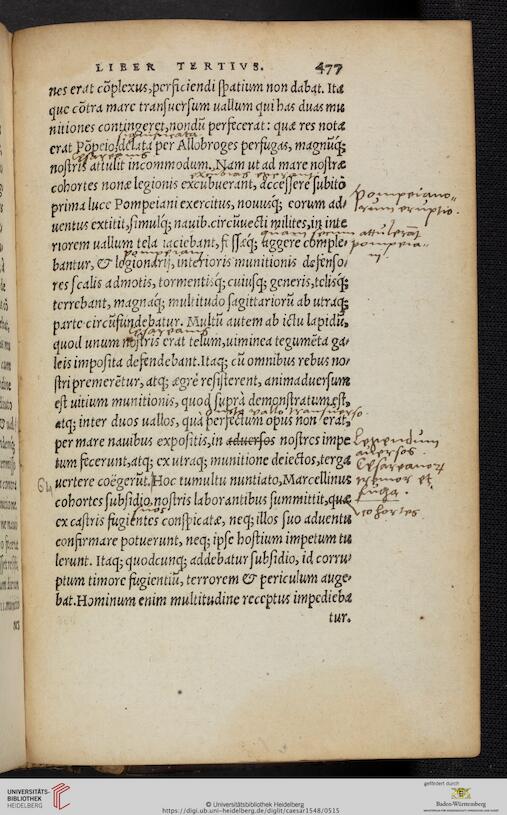 LIBER TERTIVS. 477
nes erat cõplexus, perficiendi spatium non dabat. Ita
que cõtra mare transuersum uallum qui has duas mu
nitiones contingeret, nondũ perfecerat: quæ res nota
significata
erat Põpeio, delata per Allobroges perfugas, magnũq;
Cæsareanis
nostris attulit incommodum. Nam ut ad mare nostræ
excubias egerant
cohortes nonæ legionis excubuerant, accessere subitò
Pompeiano-
prima luce Pompeiani exercitus, nouusq; eorum ad-
rum eruptio.
uentus extitit, simulq; nauib. circũuecti milites, in inte
quam secum attulerãt
riorem uallum tela iaciebant, fossæq; aggere comple-
pompeiani
bantur, & legionarij, interioris munitionis defenso-
res scalis admotis, tormentisq; cuiusq; generis, telisq;
terrebant, magnaq; multitudo sagittariorũ ab utraq;
parte circũfundebatur. Multũ autem ab ictu lapidũ,
Cæsareanis
quod unum nostris erat telum, uiminea tegumẽta ga-
leis imposita defendebant. Itaq; cũ omnibus rebus no-
stri premerẽtur, atq; ægrè resisterent, animaduersum
est uitium munitionis, quod suprà demonstratum est,
uallo transuerso.
atq; inter duos uallos, quà perfectum opus non erat,
per mare nauibus expositis, in aduersos nostros impe
Legendum
auersos.
tum fecerunt, atq; ex utraq; munitione deiectos, terga
Cæsareanorũ
uertere coëgerũt. Hoc tumultu nuntiato, Marcellinus
tremor et
fuga.
64
cohortes subsidio nostris laborantibus summittit, quæ
suos
cohortes
ex castris fugientes conspicatæ, neq; illos suo aduentu
confirmare potuerunt, neq; ipse hostium impetum tu
lerunt. Itaq; quodcunq; addebatur subsidio, id corru-
ptum timore fugientiũ, terrorem & periculum auge-
bat. Hominum enim multitudine receptus impedieba
tur.
UNIVERSITÄTS-
BIBLIOTHEK
HEIDELBERG
© Universitätsbibliothek Heidelberg
https://digi.ub.uni-heidelberg.de/diglit/caesar1548/0515
gefördert durch
Baden-Württemberg